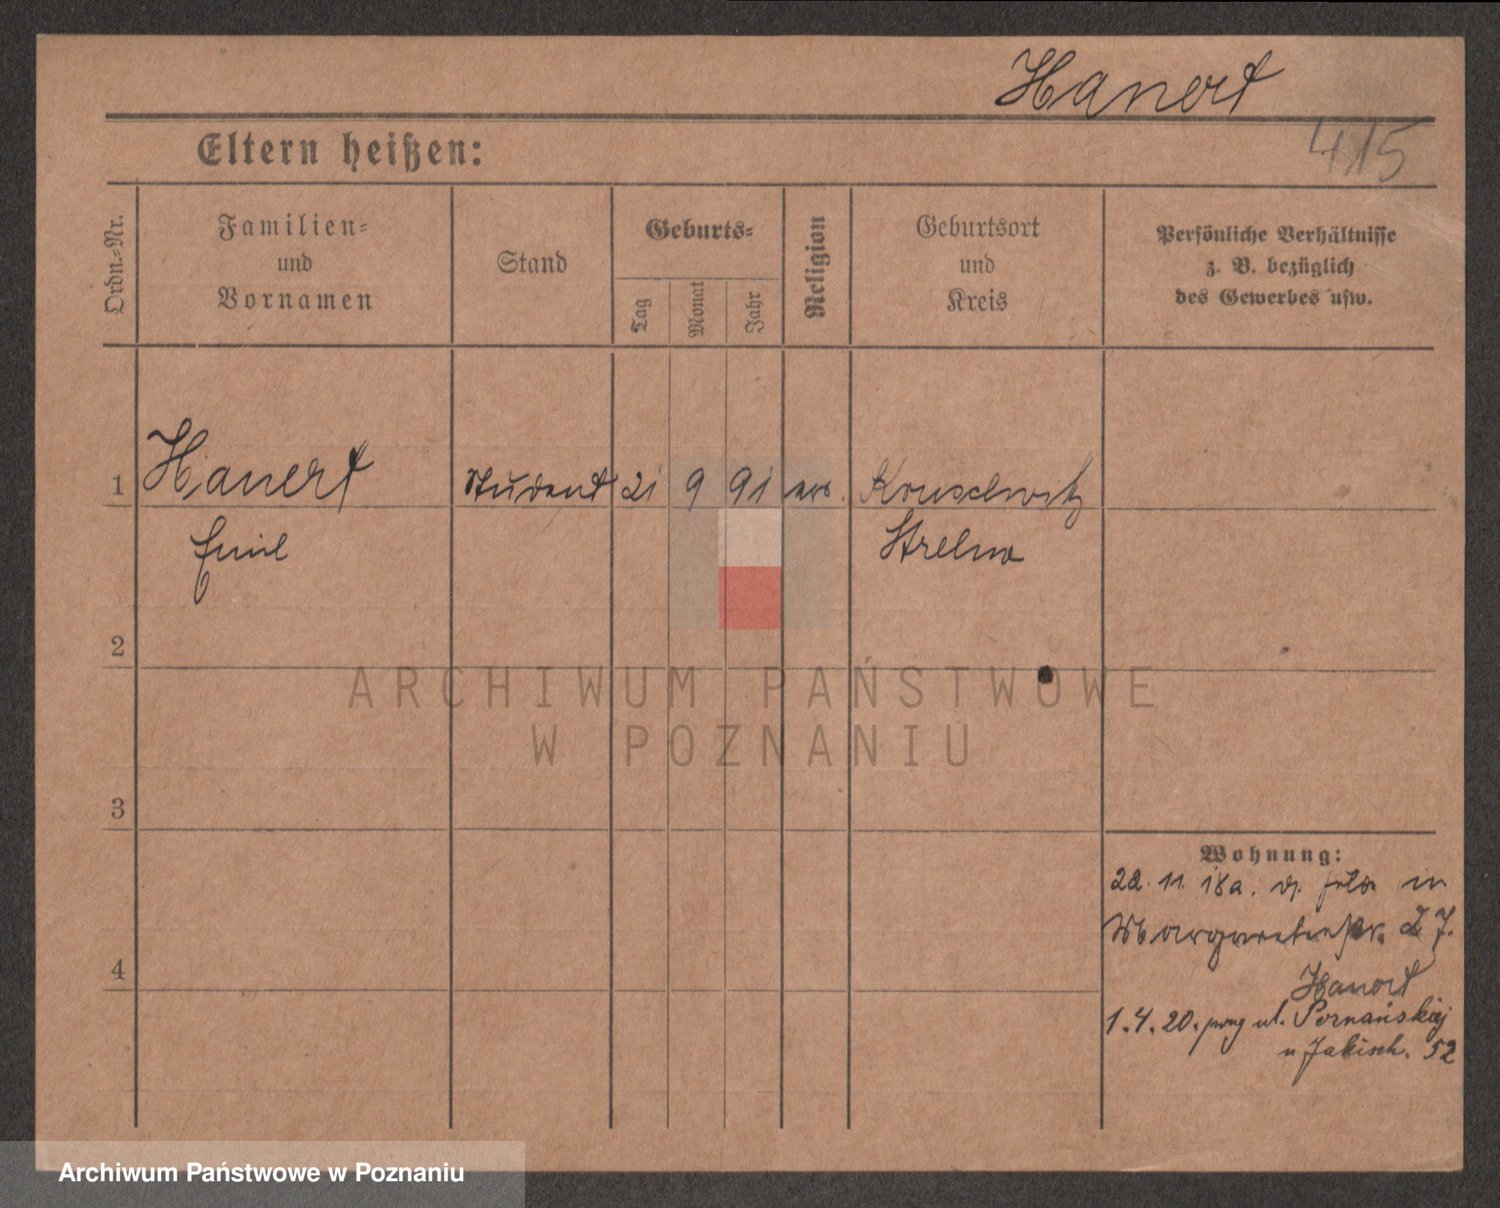 Hanert
415
Eltern heißen:
Ordn.-Nr.
Familien-
und
Vornamen
Stand
Geburts-
Tag
Monat
Jahr
Religion
Geburtsort
und
Kreis
Persönliche Verhältnisse
z. B. bezüglich
des Gewerbes usw.
1 Hanert Student 21 9 91 Kruschwitz
Emil Strelno
2
3
4
Wohnung:
22. 11. 18 a. in
Margaretenstr.
Hanert
1. 4. 20. ul. Poznańskiej
u Jakisch. 52
ARCHIWUM PAŃSTWOWE
W POZNANIU
Archiwum Państwowe w Poznaniu